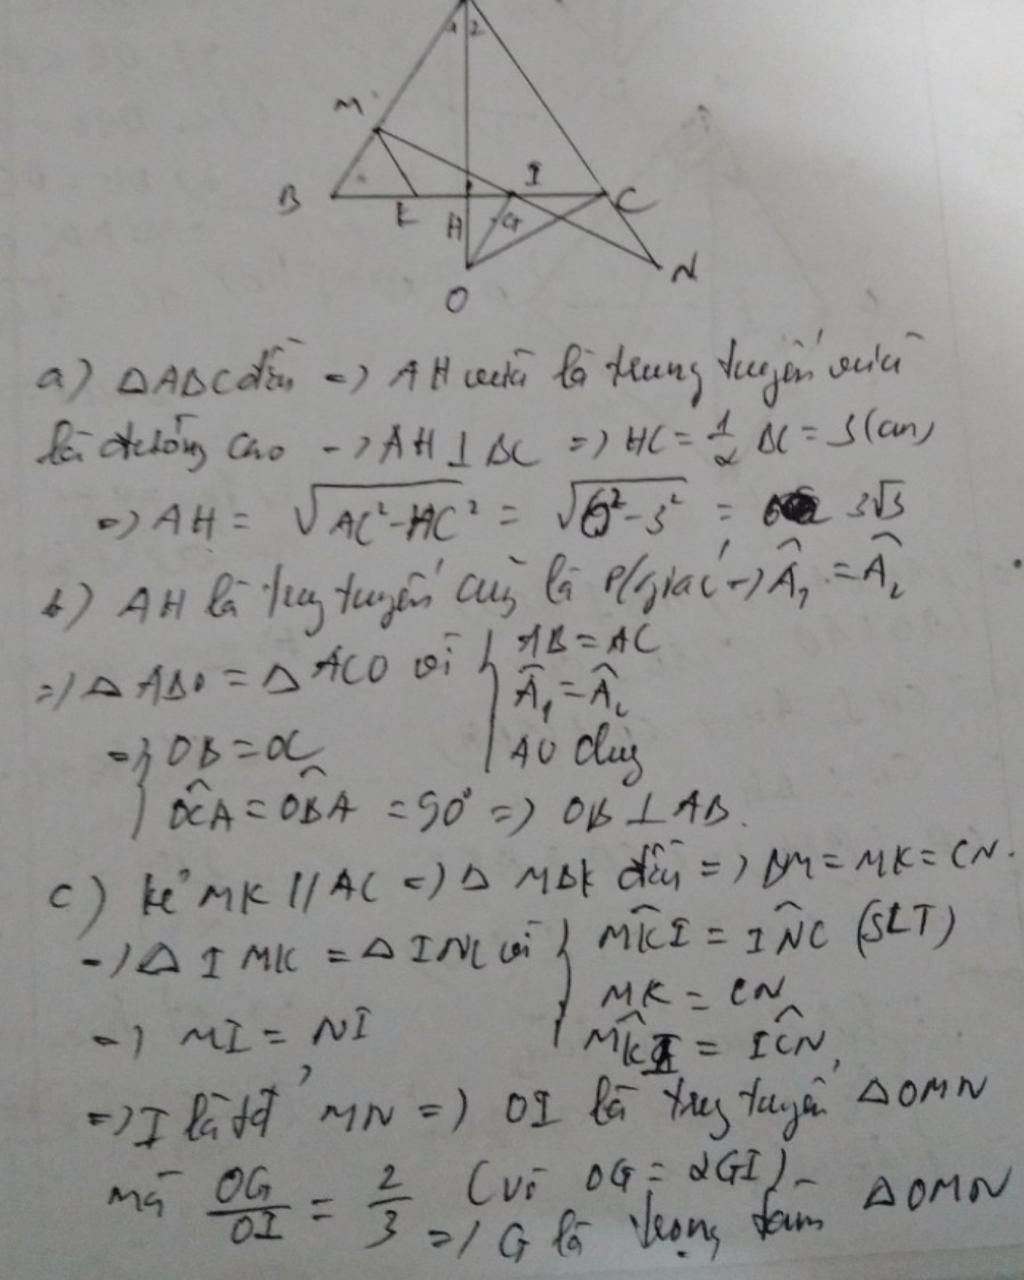 1 2
M
B K H G I C
N
O
a) ΔABC đều => AH vừa là trung tuyến vừa
là đường cao -> AH ⊥ BC => HC = 1/2 BC = 3(cm)
=> AH = √(AC² - HC²) = √(6² - 3²) = 3√3
b) AH là trung tuyến cũng là p/giác -> Â₁ = Â₂
=> Δ ABO = Δ ACO vì { AB = AC
Â₁ = Â₂
AO chung
=> { OB = OC
OCA = OBA = 90° => OB ⊥ AB.
c) kẻ MK // AC => Δ MBK đều => BM = MK = CN.
-> Δ IMK = Δ INC vì { MKI = INC (SLT)
MK = CN
MKI = ICN,
-> MI = NI
=> I là tđ MN => OI là trung tuyến ΔOMN
mà OG/OI = 2/3 (vì OG = 2GI)
=> G là trọng tâm ΔOMN